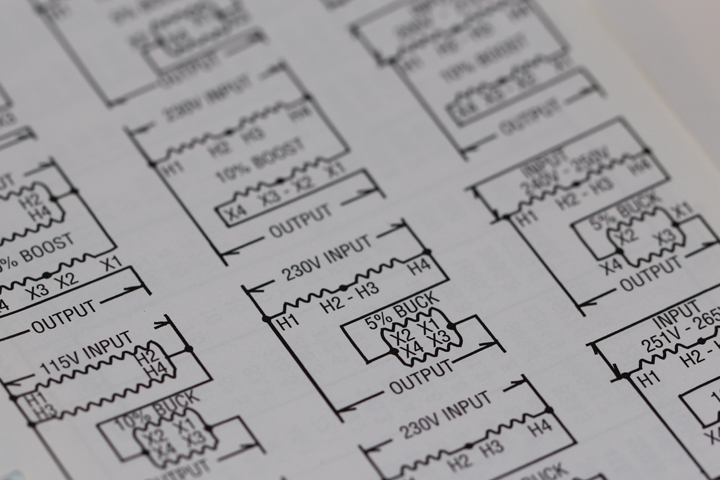 OUTPUT
10% BOOST
OUTPUT
230V INPUT
H1 H2 H3 H4
10% BOOST
X4 X3 - X2 X1
OUTPUT
INPUT
240V - 250V
H1 H2 - H3 H4
5% BUCK
X2 X1
X4 X3
OUTPUT
H2
H4
% BOOST
X3 X2 X1
OUTPUT
230V INPUT
H1 H2 - H3 H4
5% BUCK
X2 X1
X4 X3
OUTPUT
INPUT
251V - 265
H1 H2 -
115V INPUT
H1 H2
H3 H4
10% BUCK
X2 X1
X4 X3
230V INPUT
H2 H3 H4